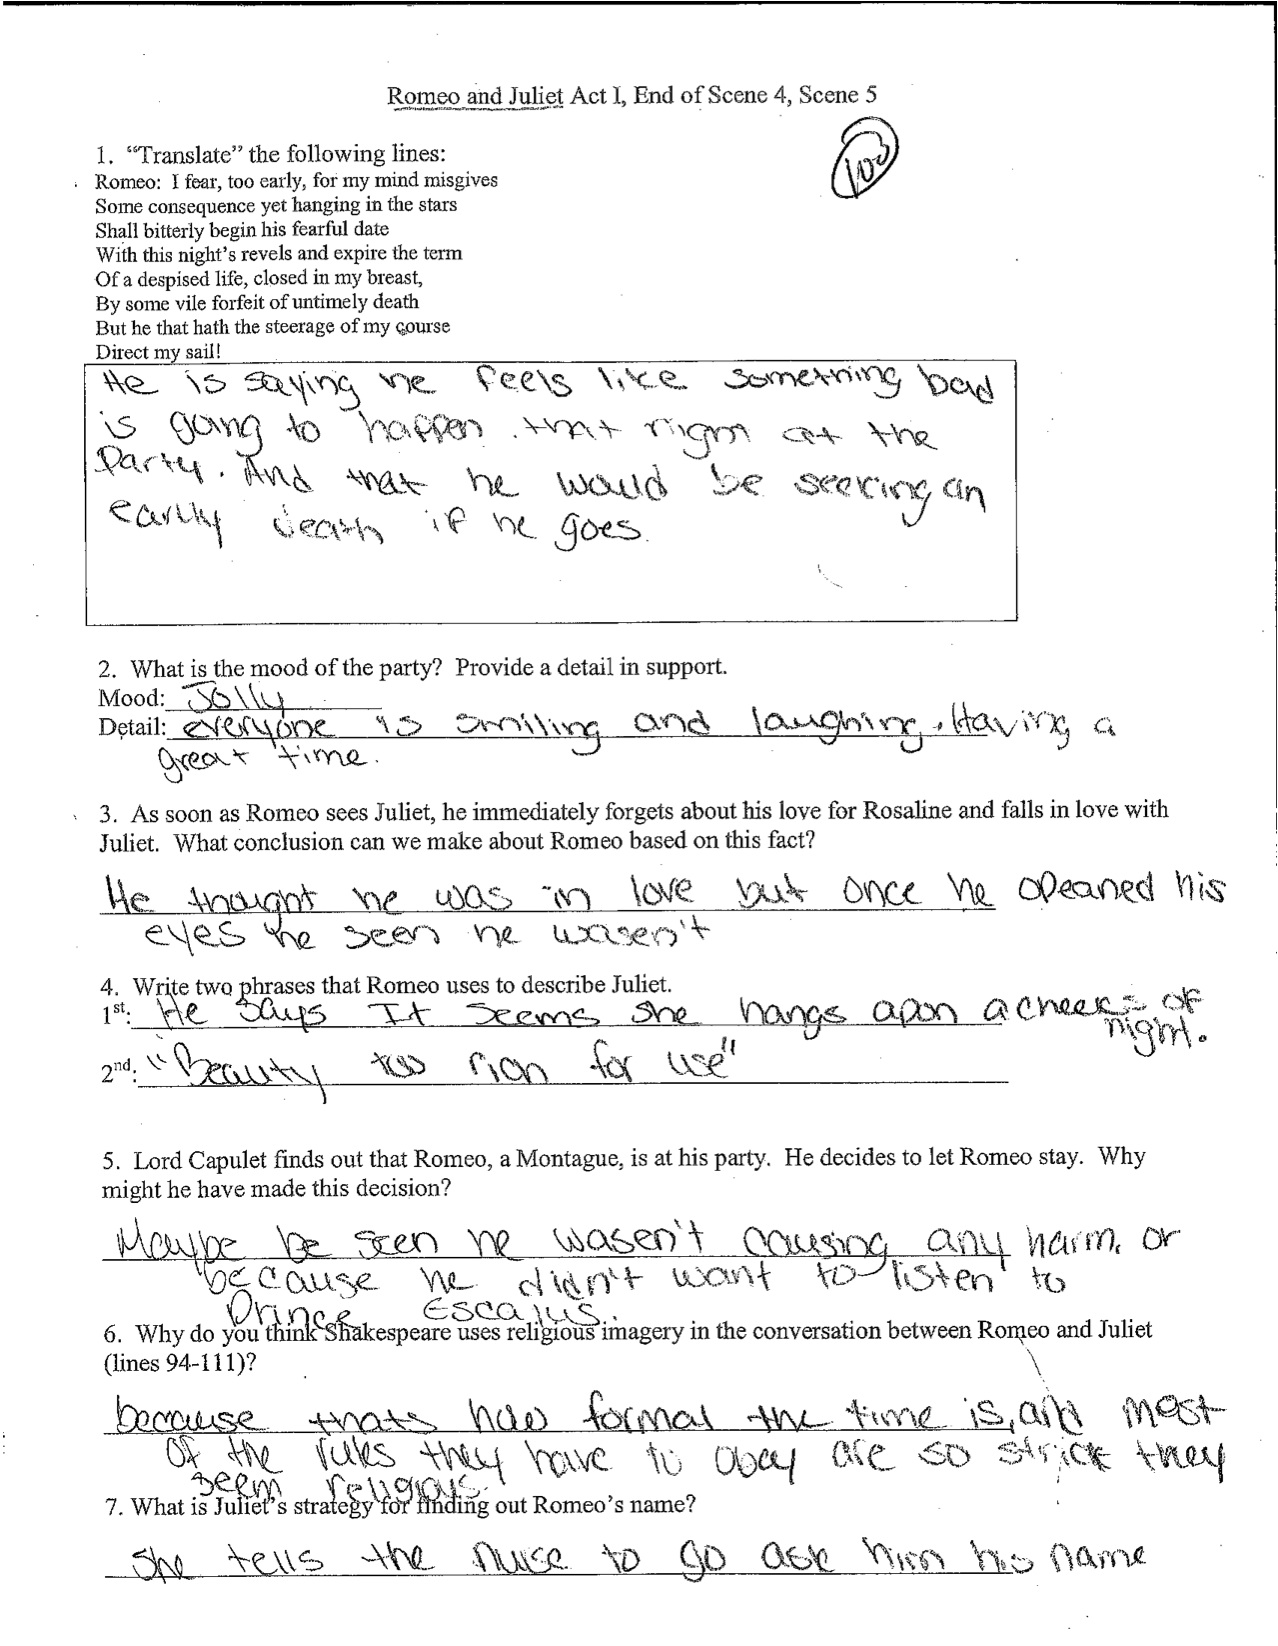 Romeo and Juliet Act I, End of Scene 4, Scene 5
100
1. “Translate” the following lines:
Romeo: I fear, too early, for my mind misgives
Some consequence yet hanging in the stars
Shall bitterly begin his fearful date
With this night’s revels and expire the term
Of a despised life, closed in my breast,
By some vile forfeit of untimely death
But he that hath the steerage of my course
Direct my sail!
He is saying he feels like something bad
is going to happen that night at the
Party. And that he would be seeking an
early death if he goes.
2. What is the mood of the party? Provide a detail in support.
Mood: Jolly
Detail: everyone is smiling and laughing. Having a
great time.
3. As soon as Romeo sees Juliet, he immediately forgets about his love for Rosaline and falls in love with
Juliet. What conclusion can we make about Romeo based on this fact?
He thought he was in love but once he opeaned his
eyes he seen he wasen't
4. Write two phrases that Romeo uses to describe Juliet.
1st: He says It seems she hangs apon a cheeks of
night.
2nd: "Beauty too rich for use"
5. Lord Capulet finds out that Romeo, a Montague, is at his party. He decides to let Romeo stay. Why
might he have made this decision?
Maybe he seen he wasen't causing any harm. or
because he didn't want to listen to
Prince Escalus.
6. Why do you think Shakespeare uses religious imagery in the conversation between Romeo and Juliet
(lines 94-111)?
because thats how formal the time is, and most
of the rules they have to obay are so strick they
seem religious.
7. What is Juliet’s strategy for finding out Romeo’s name?
She tells the nurse to go ask him his name